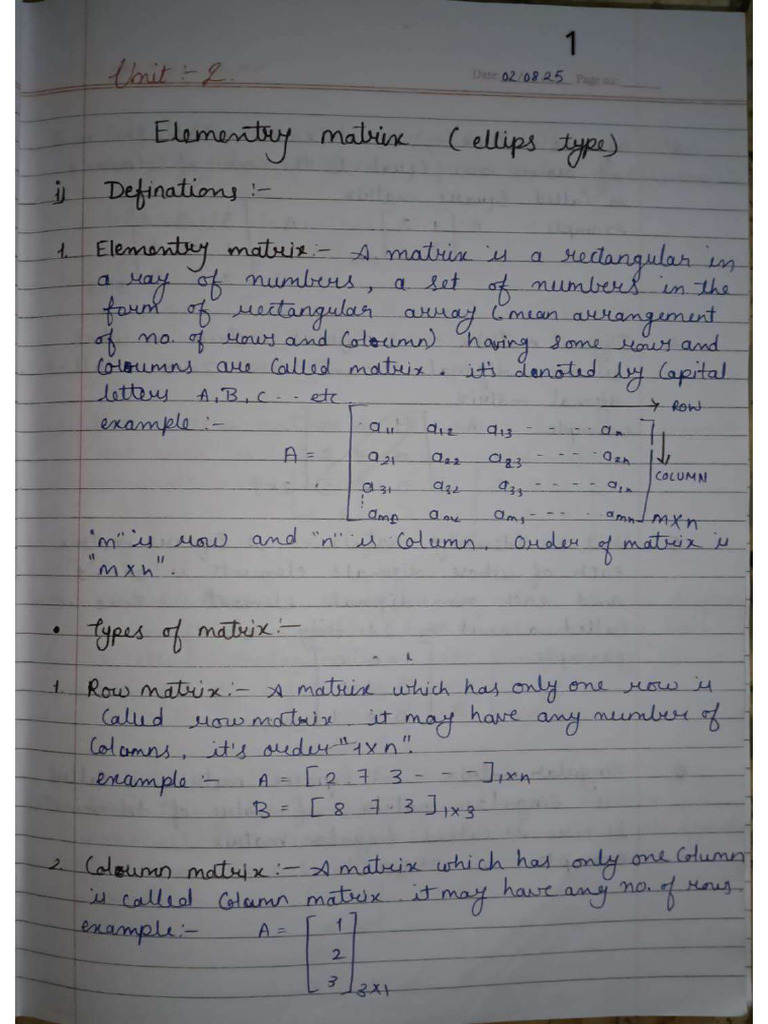 1
Unit :- 2.
Date: 02/08/25 Page no:
Elementry matrix (ellips type)
i) Definations :-
1. Elementry matrix :- A matrix is a rectangular in
a ray of numbers, a set of numbers in the
form of rectangular array (mean arrangement
of no. of rows and Coloumn) having some rows and
Coloumns are Called matrix. it's denoted by Capital
letters A, B, C -- etc
example :-
→ ROW
A = [ a11 a12 a13 - - - - an
a21 a22 a23 - - - - a2n
↓ COLUMN
a31 a32 a33 - - - - a1n
am1 am2 am3 - - - amn ] m×n
"m" is row and "n" is Column. Order of matrix is
"m×n".
• Types of matrix :-
1. Row matrix :- A matrix which has only one row is
Called row matrix. it may have any number of
Colomns. it's order "1×n".
example :- A = [2 7 3 - - -]1×n
B = [8 7 3]1×3
2. Coloumn matrix :- A matrix which has only one Column
is called Column matrix. it may have any no. of rows.
example :- A = [ 1
2
3 ] 3×1